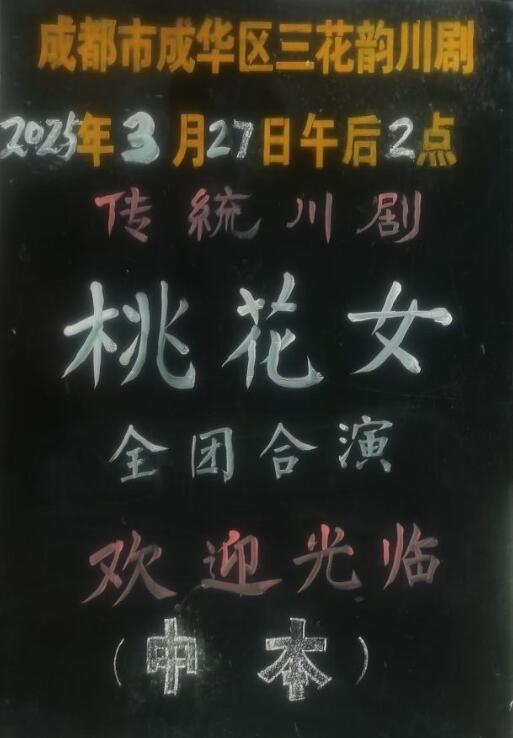 成都市成华区三花韵川剧
2025年3月27日午后2点
传統川剧
桃花女
全团合演
欢迎光临
(中本)